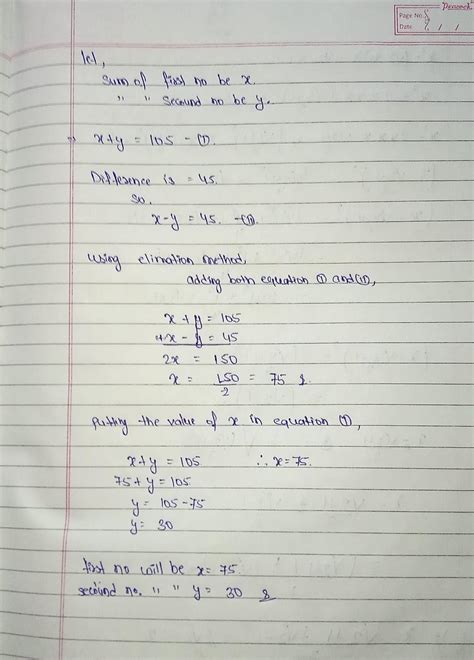 Peacock
Page No.
Date
let,
sum of first no be x.
" " secound no be y.
⇒ x+y = 105 - ①.
Difference is = 45.
So,
x-y = 45. -②.
Using elimation method,
adding both equation ① and ②,
x + y = 105
+x - y = 45
2x = 150
x = 150/2 = 75
Putting the value of x in equation ①,
x+y = 105 ∴ x=75.
75+y = 105
y = 105-75
y = 30
first no will be x = 75.
secound no. " " y = 30